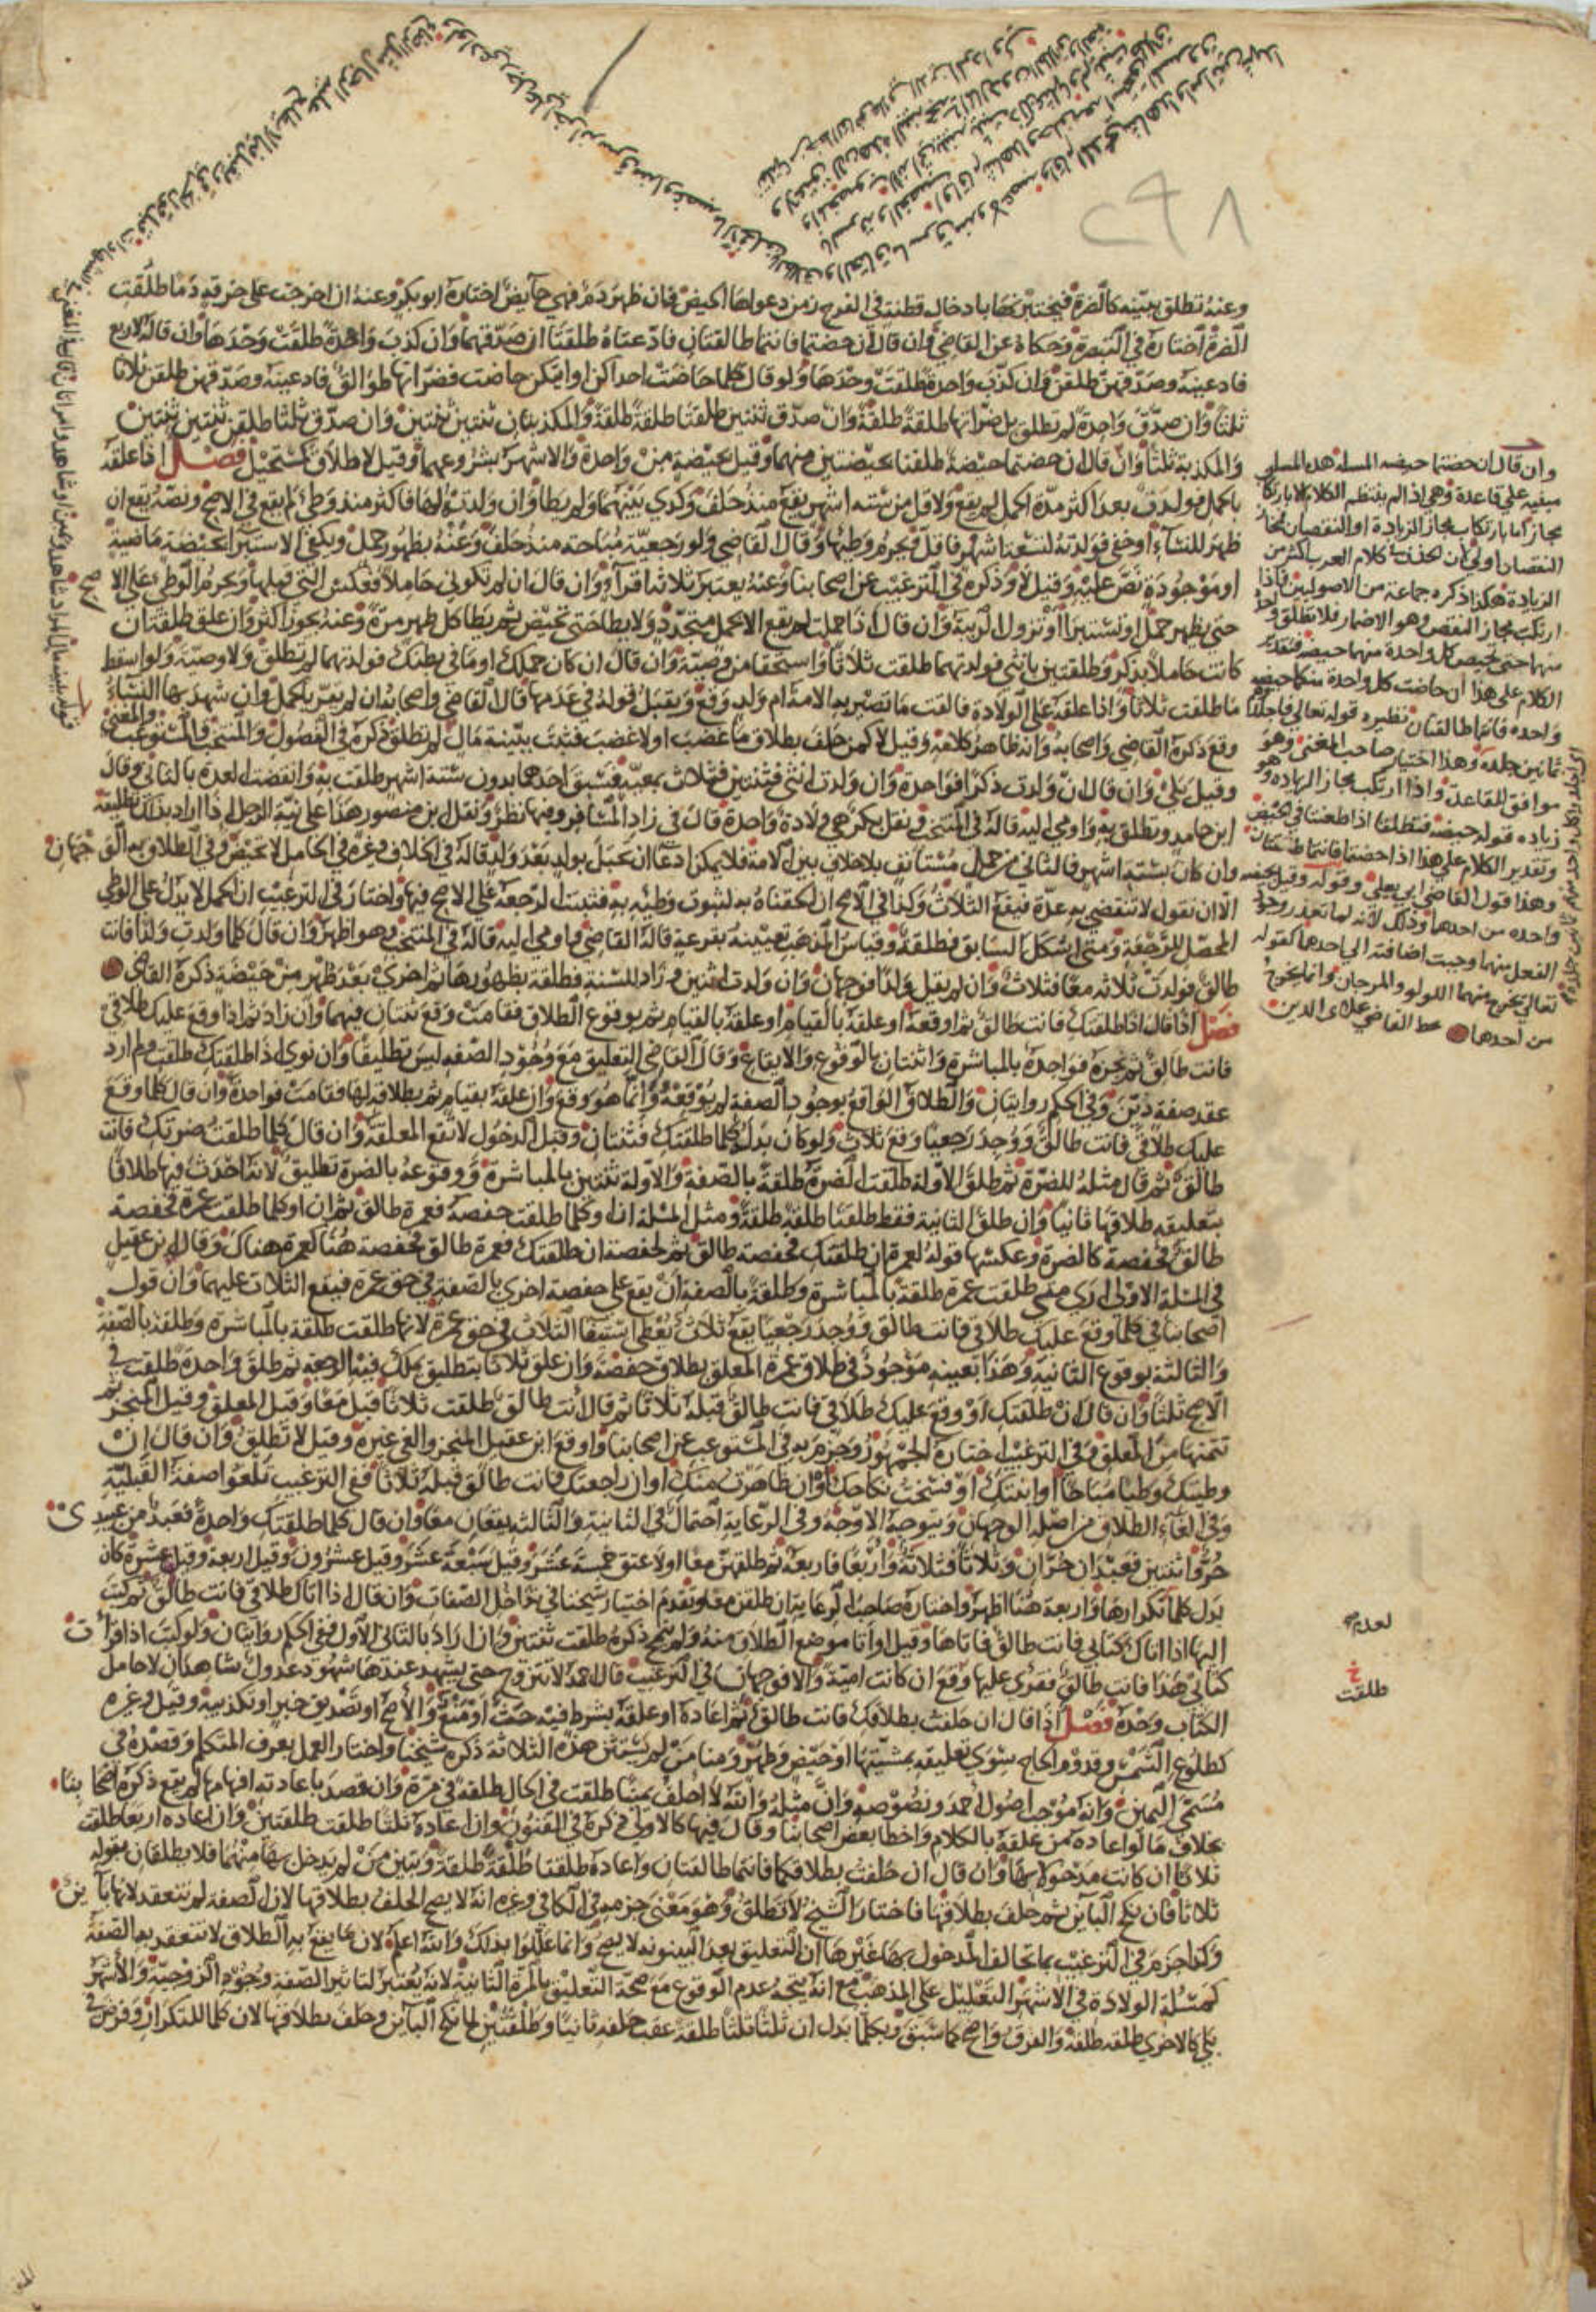 وعنه تطلق ببينة كالضرة فيختبرنها بادخال قطنة في الفرج زمن دعواها الحيض فان ظهر دم فهي حايض اختاره ابو بكر وعنه ان اخرجت على خرقة دما طلقت
الضرة اختاره في التبصرة وحكاه عن القاضي وان قال ان حضتما فانتما طالقتان فادعتاه طلقتا ان صدقهما وان كذب واحدة طلقت وحدها وان قاله لاربع
فادعينه وصدقهن طلقن وان كذب واحدة طلقت وحدها ولو قال كلما حاضت احداكن او ايتكن حاضت فضراتها طوالق فادعينه وصدقهن طلقن ثلاثا
ثلثا وان صدق واحدة لم تطلق بل ضراتها طلقة طلقة وان صدق ثنتين طلقتا طلقة طلقة والمكذبتان ثنتين ثنتين وان صدق ثلثا طلقن ثنتين ثنتين
والمكذبة ثلثا وان قال ان حضتما حيضة طلقتا بحيضتين منهما وقيل بحيضة من واحدة والاشهر بشروعهما وقيل لا طلاق كمستحيل فصل اذا علقه
بالحمل فولدت بعد اكثر مدة الحمل لم يقع ولاقل من ستة اشهر يقع منذ حلف وكذي بينهما ولم يطا وان ولدته لها فاكثر منذ وطئ لم يقع في الاصح ونصه يقع ان
ظهر للنساء او خفي فولدته لتسعة اشهر فاقل ويحرم وطيها وقال القاضي ولو رجعية مباحة منذ حلف وعنه بظهور حمل ويكفي الاستبرا بحيضة ماضية
او موجودة نص عليه وقيل لا وذكره في الترغيب عن اصحابنا وعنه يعتبر ثلاثة اقرا وان قال ان لم تكوني حاملا فعكس التي قبلها ويحرم الوطئ على الا
حتى يظهر حمل او تستبرا او تزول الريبة وان قال اذا حملت لم يقع الا بحمل متجدد ولا يطا حتى تحيض ثم يطا كل طهر مرة وعنه يجوز اكثر وان علق طلقتان
كانت حاملا بذكر وطلقتين بانثى فولدتهما طلقت ثلاثا واستحقا من وصية وان قال ان كان حملك او ما في بطنك فولدتهما لم تطلق ولا وصية ولو اسقط
ما طلقت ثلاثا واذا علقه على الولادة فالقت ما تصير به الامة ام ولد وقع ويقبل قوله في عدمها قال القاضي واصحابه ان لم يقر بالحمل وان شهد بها النساء
وقع ذكره القاضي واصحابه وانه ظاهر كلامه وقيل لا كمن حلف بطلاق ما غصب او لا غصب فثبت ببينة مال لم تطلق ذكره في الفصول والمنتخب والمستوعب والمغني
وقيل بلى وان قال ان ولدت ذكرا فواحدة وان ولدت انثى فثنتين فثلاث بمعية فبسبق احدهما بدون ستة اشهر طلقت به وانقضت العدة بالثاني وقال
ابن حامد وتطلق به واومى اليه قاله في المنتخب ونقل بكر هي ولادة واحدة قال في زاد المسافر وفيها نظر ونقل ابن منصور هذا على نية الرجل اذا اراد بذلك تطليقة
وان كان بستة اشهر فالثاني من حمل مستانف بلا خلاف بين الامة فلا يمكن ادعا ان تحبل بولد بعد ولد قاله في الخلاف وغيره في الحامل لا تحيض وفي الطلاق به الوجهان
الا ان نقول لا تنقضي به عدة فيقع الثلاث وكذا في الاصح ان الحقناه به لثبوت وطئه به فتثبت الرجعة على الاصح فيها واختار في الترغيب ان الحمل لا يدل على الوطي
المحصل للرجعة ومتى اشكل السابق فطلقة وقياس المذهب تعيينه بقرعة قاله القاضي واومى اليه قاله في المنتخب وهو اظهر وان قال كلما ولدت ولدا فانت
طالق فولدت ثلاثة معا فثلاث وان لم يقل ولدا فوجهان وان ولدت اثنين وزاد للسنة فطلقة بطهورها ثم اخرى بعد طهر من حيضة ذكره القاضي
فصل اذا قال اذا طلقتك فانت طالق ثم اوقعه او علقه بالقيام او علقه بالقيام ثم بوقوع الطلاق فقامت وقع ثنتان فيهما وان زاد ثم اذا وقع عليك طلاقي
فانت طالق ثم نجزه فواحدة بالمباشرة واثنتان بالوقوع والايقاع وقال القاضي التعليق مع وجود الصفة ليس تطليقا وان نوى اذا طلقتك طلقت ولم ارد
عقد صفة دين وفي الحكم روايتان والطلاق الواقع بوجود الصفة لم يوقعه وانما هو وقع وان علقه بقيام ثم بطلاقه لها فقامت فواحدة وان قال كلما وقع
عليك طلاقي فانت طالق ووجد رجعيا وقع ثلاث ولو كان بدل كلما طلقتك فثنتان وقبل الدخول لا تقع المعلقة وان قال كلما طلقت ضرتك فانت
طالق ثم قال مثله للضرة ثم طلق الاولة طلقت الضرة طلقة بالصفة والاولة ثنتين بالمباشرة ووقوعه بالضرة تطليق لانه احدث فيها طلاقا
بتعليقه طلاقها ثانيا وان طلق الثانية فقط طلقتا طلقة طلقة ومثل المسئلة ان او كلما طلقت حفصة فعمرة طالق ثم ان او كلما طلقت عمرة فحفصة
طالق فحفصة كالضرة وعكسها قوله لعمرة ان طلقتك فحفصة طالق ثم لحفصة ان طلقتك فعمرة طالق فحفصة هنا كعمرة هناك وقال ابن عقيل
في المسئلة الاولى ارى متى طلقت عمرة طلقة بالمباشرة وطلقة بالصفة ان يقع على حفصة اخرى بالصفة في حق عمرة فيقع الثلاث عليهما وان قول
اصحابنا في كلما وقع عليك طلاقي فانت طالق ووجد رجعيا يقع ثلاث يعطى استيفا الثلاث في حق عمرة لانها طلقت طلقة بالمباشرة وطلقة بالصفة
والثالثة بوقوع الثانية وهذا بعينه موجود في طلاق عمرة المعلق بطلاق حفصة وان علق ثلاثا بتطليق يملك فيه الرجعة ثم طلق واحدة طلقت في
الاصح ثلثا وان قال ان طلقتك او وقع عليك طلاقي فانت طالق قبله ثلاثا ثم قال انت طالق طلقت ثلاثا قيل معا وقيل المعلق وقيل المنجز ثم
تتمتها من المعلق وفي الترغيب اختاره الجمهور وجزم به في المستوعب عن اصحابنا واوقع ابن عقيل المنجز والغي غيره وقيل لا تطلق وان قال ان
وطيتك وطيا مباحا او ابنتك او فسخت نكاحك او ان ظاهرت منك او ان راجعتك فانت طالق قبله ثلاثا ففي الترغيب تلغوا صفة القبلية
وفي الغاء الطلاق من اصله الوجهان ويتوجه الاوجه وفي الرعاية احتمال في الثانية والثالثة يقعان معا وان قال كلما طلقتك واحدة فعبد من عبيدي
حر واثنتين فعبدان حران وثلاثا فثلاثة واربعا فاربعة ثم طلقهن معا او لا عتق خمسة عشر وقيل سبعة عشر وقيل عشرون وقيل اربعة وقيل عشرة كان
بدل كلما تكرارها واربعة هنا اظهر واختاره صاحب الرعاية ان طلقن معا وتقدم اختيار شيخنا في تداخل الصفات وان قال اذا اتاك طلاقي فانت طالق ثم كتب
اليها اذا اتاك كتابي فانت طالق فاتاها وقيل او اتا موضع الطلاق منه ولم ينمح ذكره طلقت ثنتين وان اراد بالثاني الاول ففي الحكم روايتان ولو كتب اذا قرات
كتابي هذا فانت طالق فقرئ عليها وقع ان كانت امية والا فوجهان في الترغيب قال احمد لا تتزوج حتى يشهد عندها شهود عدول شاهدان لا حامل
الكتاب وحده فصل اذا قال ان حلفت بطلاقك فانت طالق ثم اعاده او علقه بشرط فيه حث او منع والاصح او تصديق خبر او تكذيبه وقيل وغيره
كطلوع الشمس وقدوم الحاج سوى تعليقه بمشيتها او حيض وطهر ومنا من لم يستثن هذه الثلاثة ذكره شيخنا واختار العمل بعرف المتكلم وقصده في
مسمى اليمين وانه موجب اصول احمد ونصوصه وان مثله والله لا احلف يمينا طلقت في الحال طلقة في مرة وان قصد باعادته افهامها لم يقع ذكره اصحابنا
بخلاف ما لو اعاده من علقه بالكلام واخطا بعض اصحابنا وقال فيها كالاولى ذكره في الفنون وان اعاده ثلثا طلقت طلقتين وان اعاده اربعا طلقت
ثلاثا ان كانت مدخولا بها وان قال ان حلفت بطلاقكما فانتما طالقتان واعاده طلقتا طلقة طلقة وتبين من لم يدخل بها منهما فلا يطلقان بقوله
ثلاثا فان نكح البائن ثم حلف بطلاقها فاختار الشيخ لا تطلق وهو معنى جزمه في الكافي وغيره انه لا يصح الحلف بطلاقها لان الصفة لم تنعقد لانها باين
وكذا جزم في الترغيب بما تخالف المدخول بها غيرها ان التعليق بعد البينونة لا يصح وانما عللوا بذلك والله اعلم لان ما يقع به الطلاق لا تنعقد به الصفة
كمسئلة الولادة في الاشهر التعليل على المذهب مع انه يتجه عدم الوقوع مع صحة التعليق بالمرة الثانية لانه يعتبر لتاثير الصفة وجود الزوجية والاشهر
بلى كالاخرى طلقة طلقة والفرق واضح كما سبق وبكلما بدل ان ثلثا ثلثا طلقة عقب حلفه ثانيا وطلقتين لما نكح البائن وحلف بطلاقها لان كلما للتكرار وفرض في
وان قال ان حضتما حيضه المسله هذه المسله
مبنيه على قاعدة وهي اذا لم ينتظم الكلام الا بارتكا
مجاز اما بارتكاب مجاز الزيادة او النقصان فمجاز
النقصان اولى لان الحذف في كلام العرب اكثر من
الزيادة هكذا ذكره جماعة من الاصوليين فاذا
ارتكب مجاز النقص وهو الاضمار فلا تطلق واحدة
منهما حتى تحيض كل واحدة منهما حيضه فتقدير
الكلام على هذا ان حاضت كل واحدة منكما حيضه
واحده فانتما طالقتان نظيره قوله تعالى فاجلدوهم
ثمانين جلده وهذا اختيار صاحب المغني وهو
موافق للقاعدة واذا ارتكب مجاز الزياده وهو
زياده قوله حيضه فتطلقا اذا طعنتا في الحيض
وتقدير الكلام على هذا اذا حضتما فانتما طالقتان
وهذا قول القاضي ابي يعلى وقوله وقيل بحيضه
واحده من احدهما وذلك لانه لما تعذر وجود
الفعل منهما وجبت اضافته الى احدهما كقوله
تعالى يخرج منهما اللولو والمرجان وانما يخرج
من احدهما خط القاضي علاى الدين
لعدم
خ
طلقت
٢٩٨